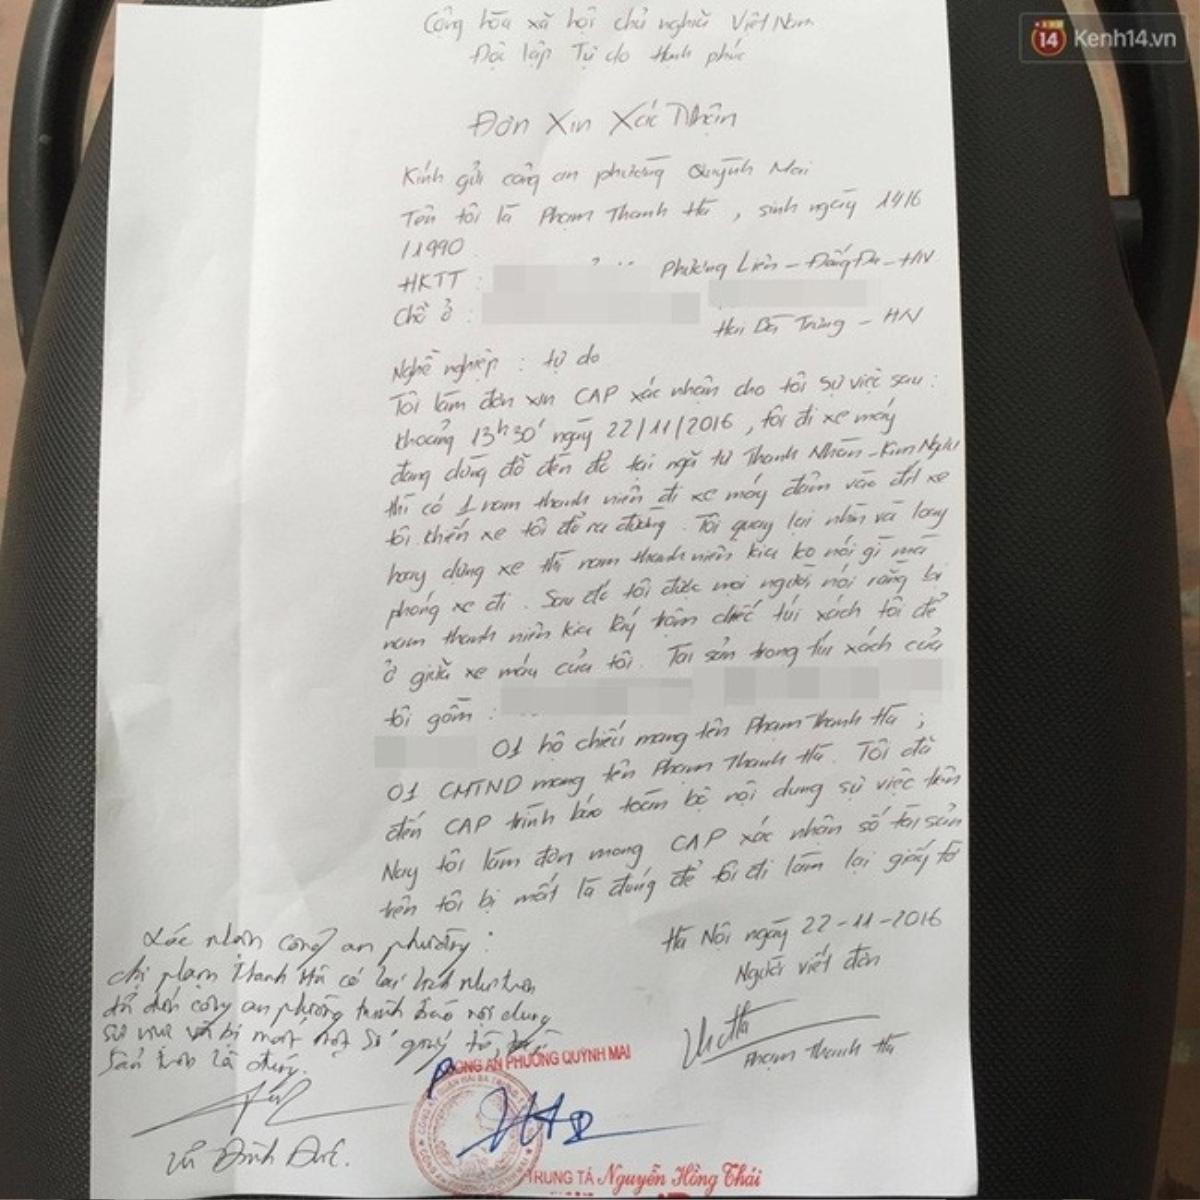 Kenh14.vn
Cộng hòa xã hội chủ nghĩa Việt Nam
Độc lập Tự do Hạnh phúc
Đơn Xin Xác Nhận
Kính gửi công an phường Quỳnh Mai
Tên tôi là Phạm Thanh Hà, sinh ngày 14/6
/1990
HKTT : Phương Liên - Đống Đa - HN
Chỗ ở :
Hai Bà Trưng - HN
Nghề nghiệp : tự do
Tôi làm đơn xin CAP xác nhận cho tôi sự việc sau :
Khoảng 13h30' ngày 22/11/2016, tôi đi xe máy
đang dừng đỗ đèn đỏ tại ngã tư Thanh Nhàn - Kim Ngưu
thì có 1 nam thanh niên đi xe máy đâm vào đít xe
tôi khiến xe tôi đổ ra đường. Tôi quay lại nhìn và loay
hoay dựng xe thì nam thanh niên kia ko nói gì mà
phóng xe đi. Sau đó tôi được mọi người nói rằng bị
nam thanh niên kia lấy trộm chiếc túi xách tôi để
ở giữa xe máy của tôi. Tài sản trong túi xách của
tôi gồm :
01 hộ chiếu mang tên Phạm Thanh Hà ;
01 CMTND mang tên Phạm Thanh Hà. Tôi đã
đến CAP trình báo toàn bộ nội dung sự việc trên
Nay tôi làm đơn mong CAP xác nhận số tài sản
trên tôi bị mất là đúng để tôi đi làm lại giấy tờ
Hà Nội ngày 22-11-2016
Người viết đơn
Phạm Thanh Hà
Xác nhận công an phường :
Chị Phạm Thanh Hà có lai lịch như trên
đã đến công an phường trình báo nội dung
sự việc và bị mất một số giấy tờ,
sản trên là đúng.
Vũ Đình Đức.
CÔNG AN PHƯỜNG QUỲNH MAI
TRUNG TÁ Nguyễn Hồng Thái